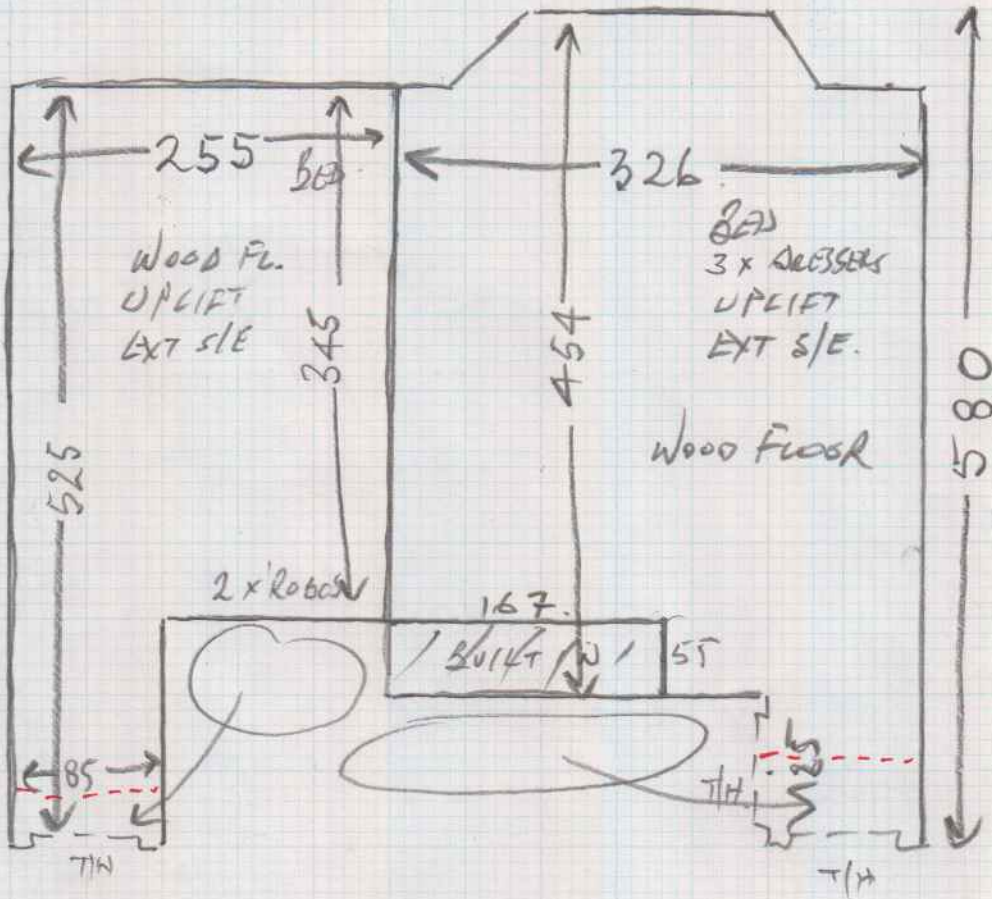 255
BED
326
WOOD FL.
UPLIFT
EXT S/E
BED
3 x DRESSERS
UPLIFT
EXT S/E.
345
454
580
525
WOOD FLOOR
2 x ROBES
167.
BUILT IN
55
85
T/H
T/H
T/H